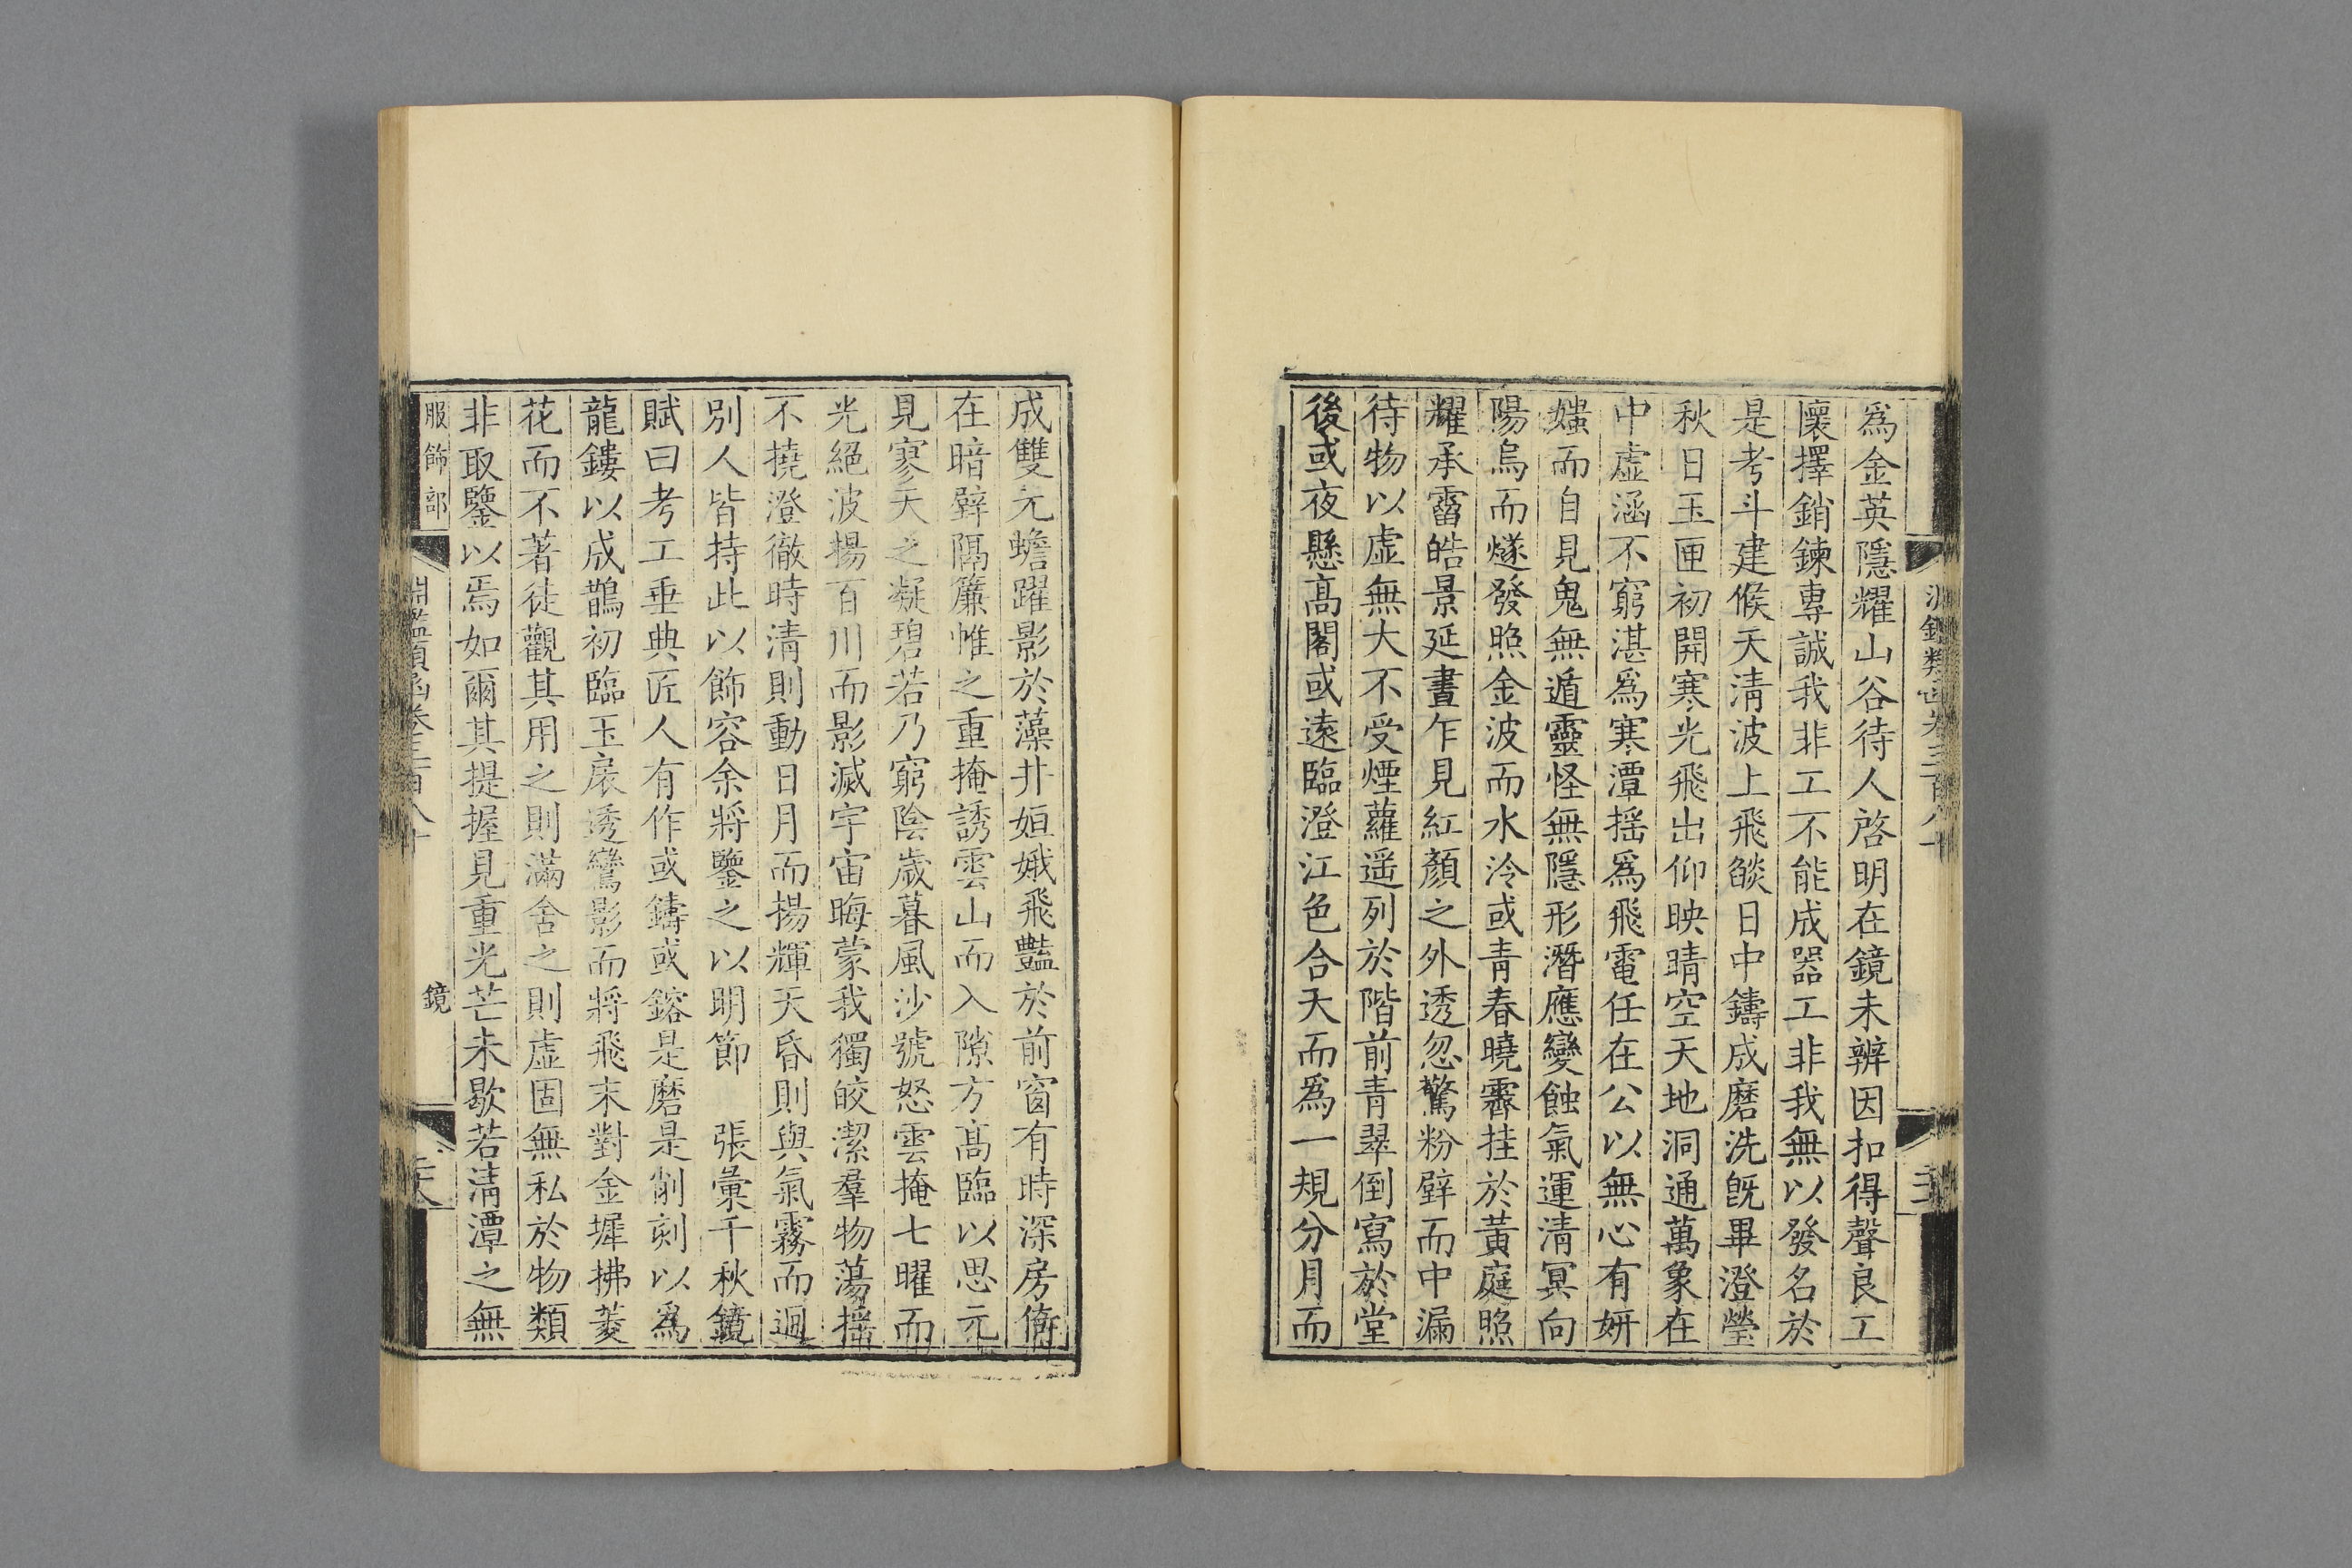 爲金英隱耀山谷待人啓明在鏡未辨因扣得聲良工
懷擇銷鍊專誠我非工不能成器工非我無以發名於
是考斗建候天淸波上飛燄日中鑄成磨洗旣畢澄瑩
秋日玉匣初開寒光飛出仰映晴空天地洞通萬象在
中虛涵不窮湛爲寒潭揺爲飛電任在公以無心有姸
媸而自見鬼無遁靈怪無隱形潛應變蝕氣運淸冥向
陽烏而燧發照金波而水泠或靑春曉霽挂於黃庭照
耀承霤皓景延晝乍見紅顏之外透忽驚粉壁而中漏
待物以虛無大不受煙蘿遥列於階前靑翠倒寫於堂
後或夜懸高閣或遠臨澄江色合天而爲一規分月而
成雙元蟾躍影於藻井姮娥飛豔於前窗有時深房脩
在暗壁隔簾惟之重掩誘雲山而入隙方高臨以思元
見寥天之凝碧若乃窮陰歲暮風沙號怒雲掩七曜而
光絕波揚百川而影滅宇宙晦蒙我獨皎潔羣物蕩揺
不撓澄徹時淸則動日月而揚輝天昏則與氣霧而迴
別人皆持此以飾容余將鑒之以明節　張彙千秋鏡
賦曰考工垂典匠人有作或鑄或鎔是磨是削刻以爲
龍鏤以成鵲初臨玉扆透鸞影而將飛末對金墀拂菱
花而不著徒觀其用之則滿舍之則虛固無私於物類
非取鑒以焉如爾其提握見重光芒未歇若淸潭之無
服飾部
淵鑑類函卷三百八十
鏡